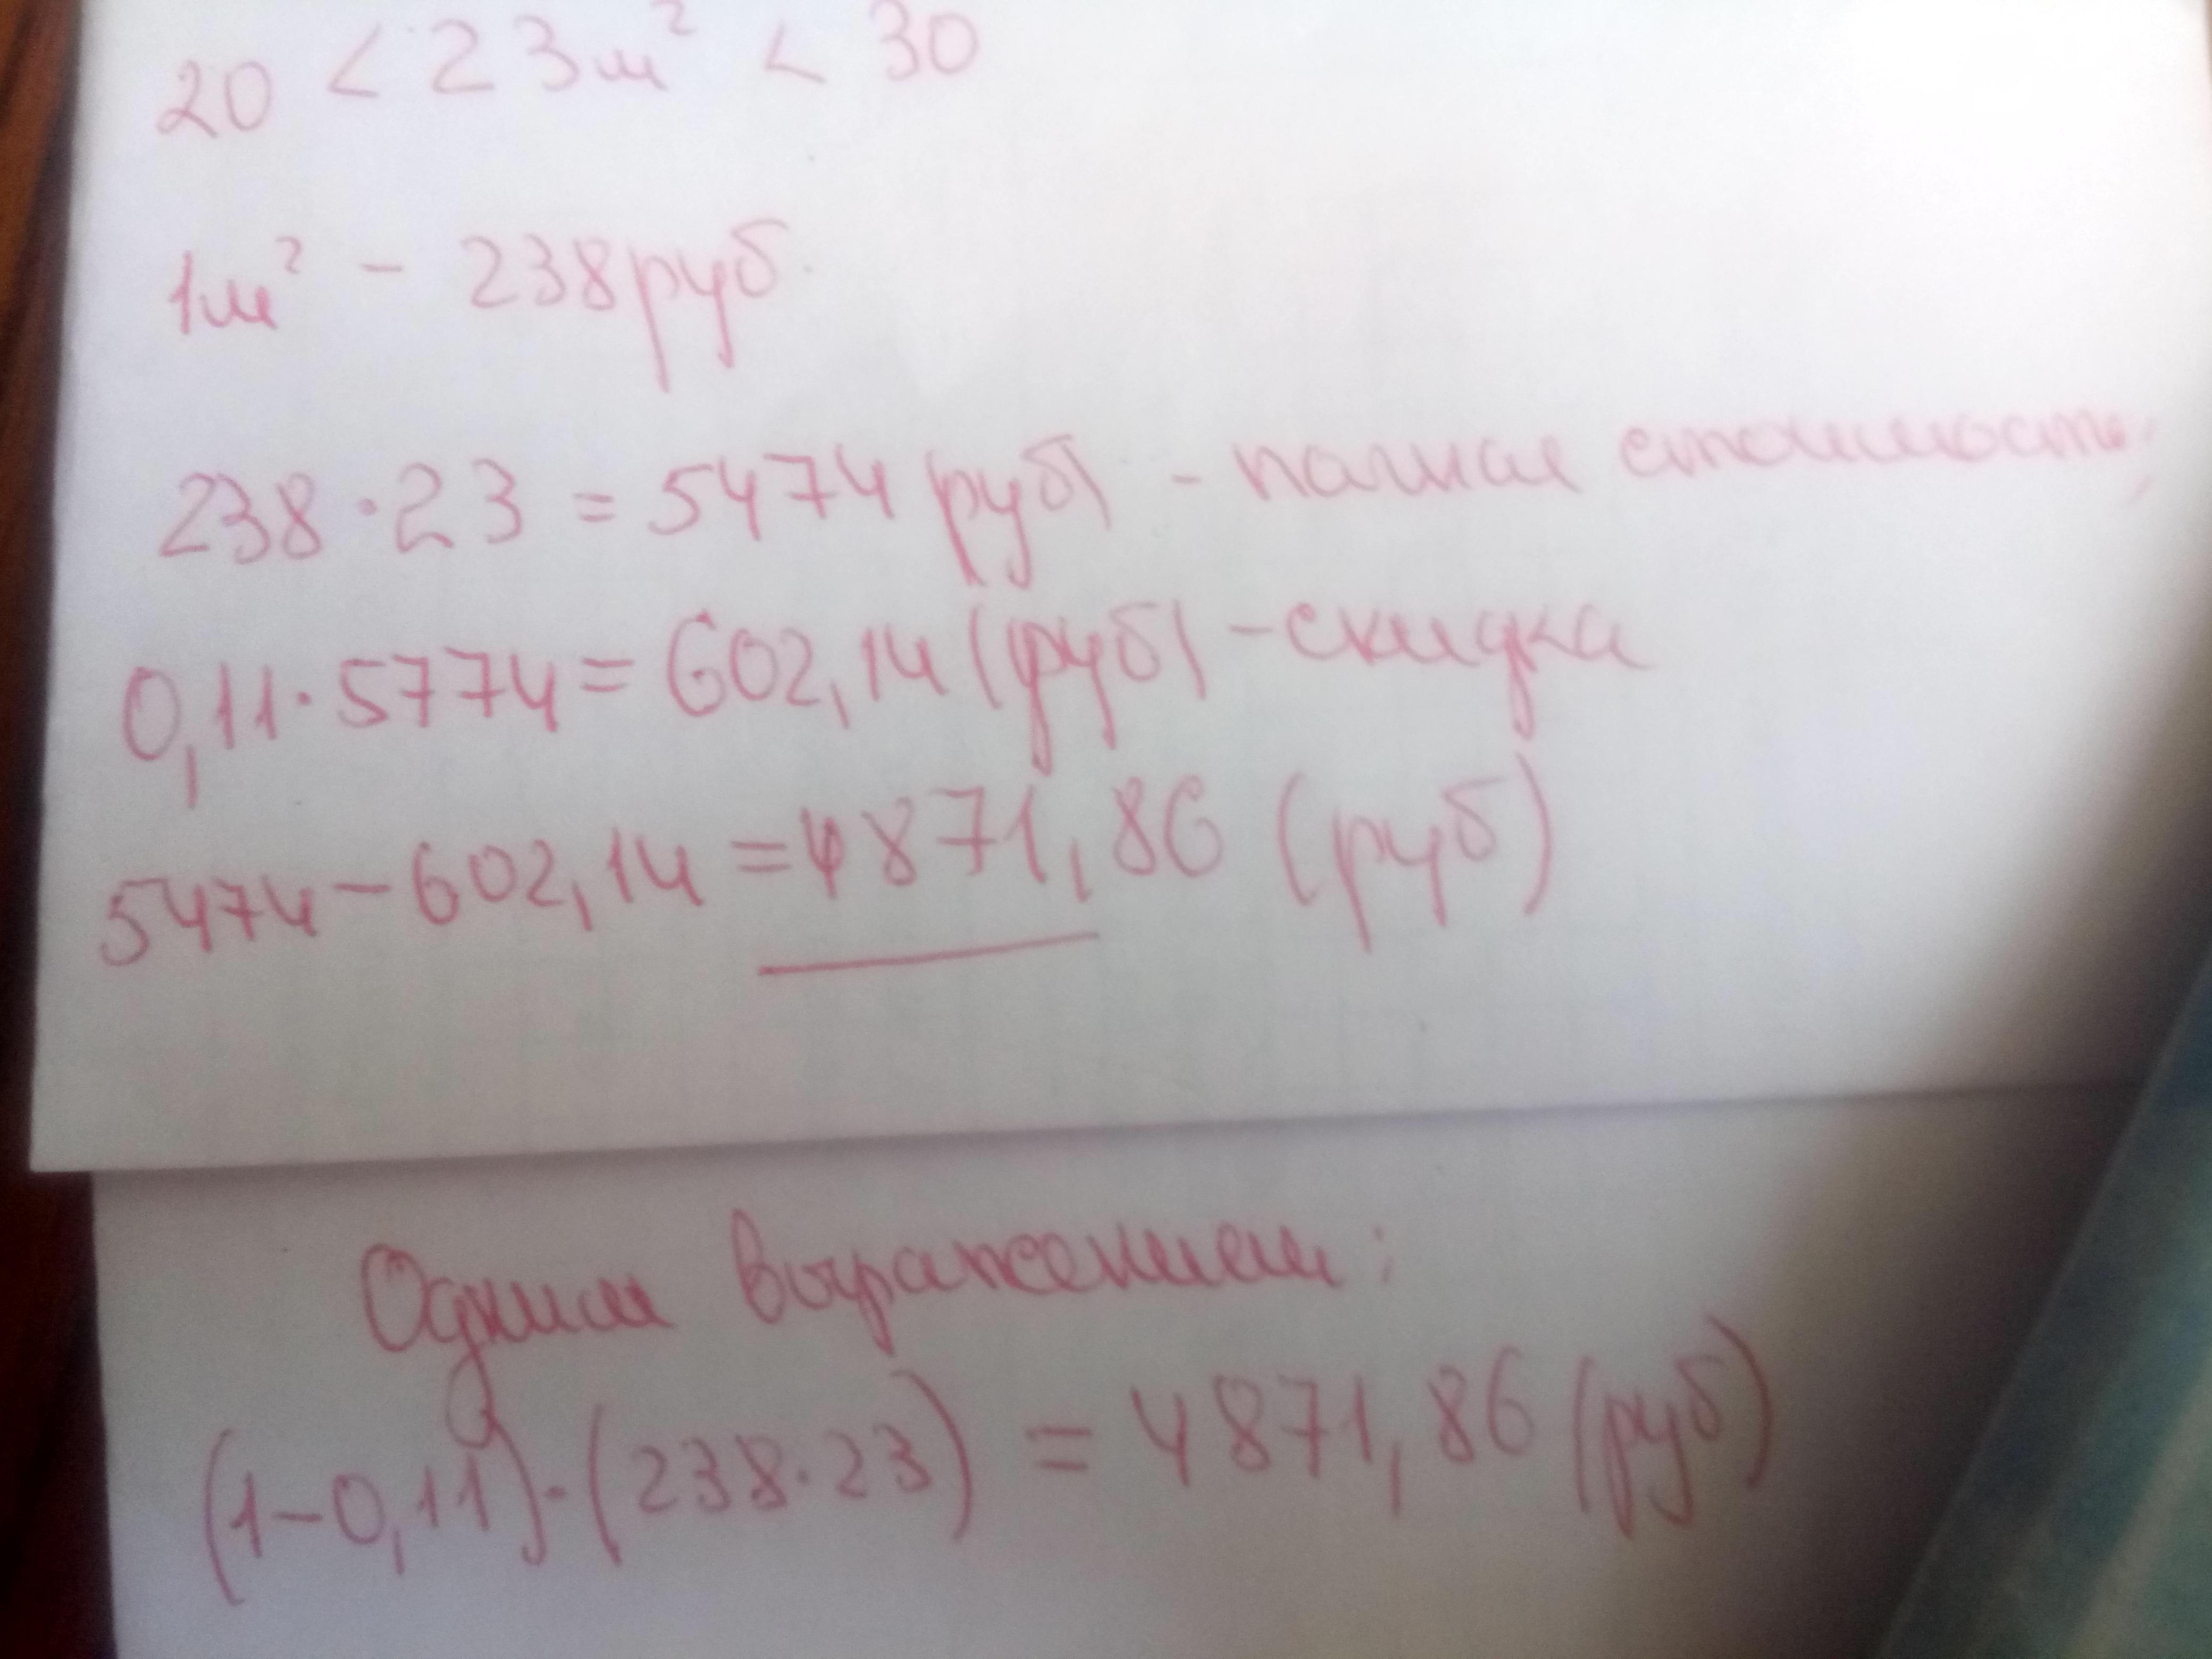 20 < 23м² < 30
1м² - 238руб.
238·23 = 5474 (руб) - полная стоимость;
0,11·5774= 602,14 (руб) - скидка
5474-602,14 =4871,86 (руб)
Одним выражением:
(1-0,11)·(238·23) = 4871,86 (руб)